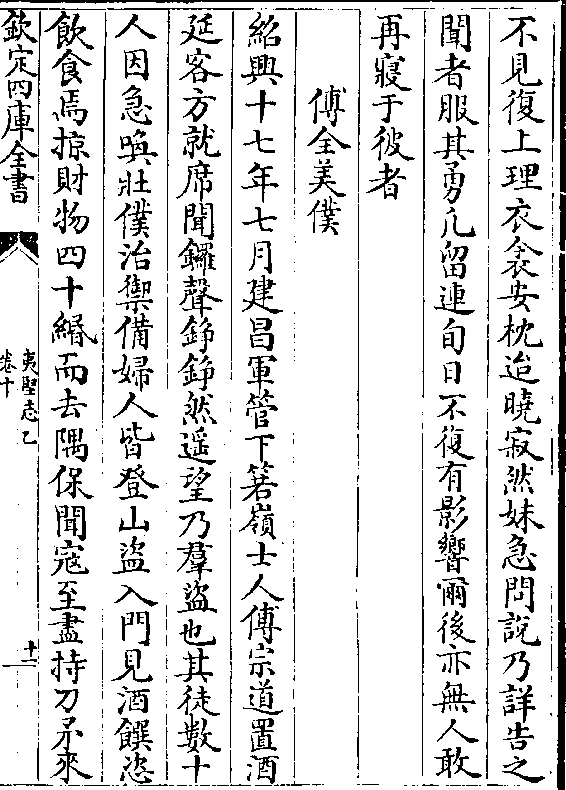 不見復上理衣衾安枕迨曉寂然妹急問説乃詳告之
聞者服其勇凡留連旬日不復有影響爾後亦無人敢
再寢于彼者
傅全美僕
紹興十七年七月建昌軍管下箬嶺士人傅宗道置酒
延客方就席聞鑼聲錚錚然遥望乃羣盜也其徒數十
人因急喚壯僕治禦備婦人皆登山盜入門見酒饌恣
飲食焉掠財物四十緡而去隅保聞寇至盡持刀矛來
欽定四庫全書
夷堅志乙
卷十
十二